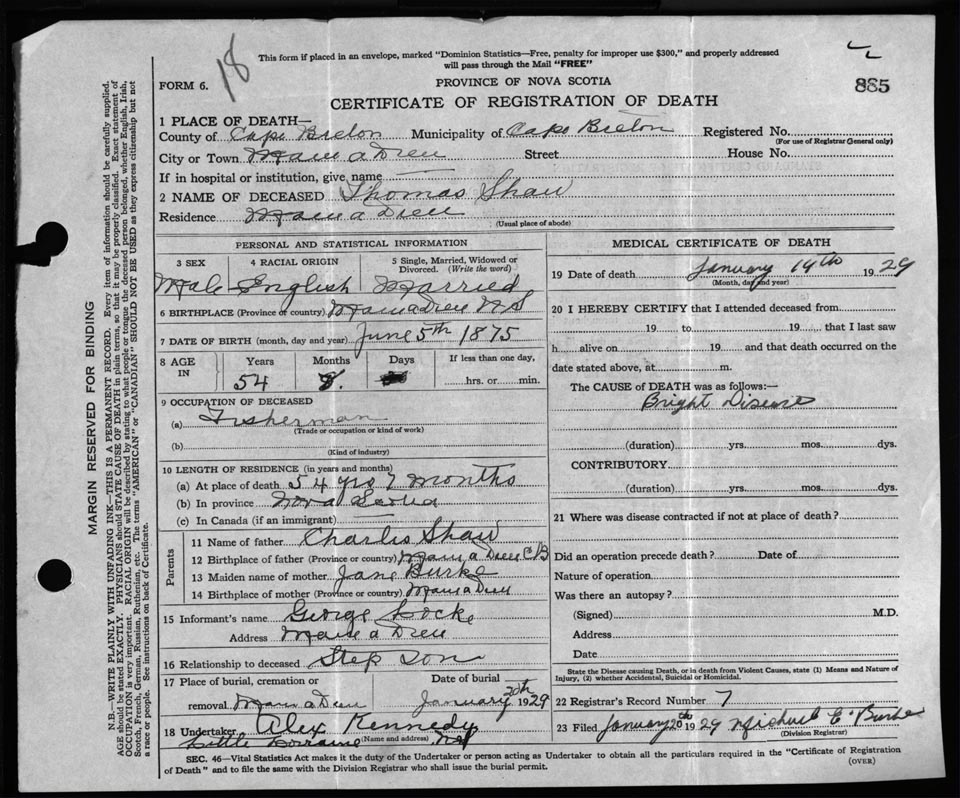 18
This form if placed in an envelope, marked "Dominion Statistics—Free, penalty for improper use $300," and properly addressed
will pass through the Mail "FREE"
FORM 6.
PROVINCE OF NOVA SCOTIA
885
CERTIFICATE OF REGISTRATION OF DEATH
1 PLACE OF DEATH—
County of Cape Breton Municipality of Cape Breton Registered No.
(For use of Registrar General only)
City or Town Main a Dieu Street House No.
If in hospital or institution, give name
2 NAME OF DECEASED Thomas Shaw
Residence Main a Dieu
(Usual place of abode)
PERSONAL AND STATISTICAL INFORMATION
3 SEX 4 RACIAL ORIGIN 5 Single, Married, Widowed or Divorced. (Write the word)
Male English Married
6 BIRTHPLACE (Province or country) Main a Dieu N S
7 DATE OF BIRTH (month, day and year) June 5th 1875
8 AGE IN Years Months Days If less than one day,
54 hrs. or min.
9 OCCUPATION OF DECEASED
(a) Fisherman
(Trade or occupation or kind of work)
(b)
(Kind of industry)
10 LENGTH OF RESIDENCE (in years and months)
(a) At place of death 54 yrs 7 months
(b) In province Nova Scotia
(c) In Canada (if an immigrant)
Parents
11 Name of father Charlis Shaw
12 Birthplace of father (Province or country) Main a Dieu CB
13 Maiden name of mother Jane Burke
14 Birthplace of mother (Province or country) Main a Dieu
15 Informant's name George Locke
Address Main a Dieu
16 Relationship to deceased Step Son
17 Place of burial, cremation or removal Date of burial
Main a Dieu January 20th 1929
18 Undertaker Alex Kennedy
(Name and address)
Little Lorraine NS
MEDICAL CERTIFICATE OF DEATH
19 Date of death January 19th 1929
(Month, day and year)
20 I HEREBY CERTIFY that I attended deceased from
19 to 19 that I last saw
h alive on 19 and that death occurred on the
date stated above, at m.
The CAUSE of DEATH was as follows:—
Bright Disease
(duration) yrs. mos. dys.
CONTRIBUTORY
(duration) yrs. mos. dys.
21 Where was disease contracted if not at place of death?
Did an operation precede death? Date of
Nature of operation
Was there an autopsy?
(Signed) M.D.
Address
Date
State the Disease causing Death, or in death from Violent Causes, state (1) Means and Nature of
Injury, (2) whether Accidental, Suicidal or Homicidal.
22 Registrar's Record Number 7
23 Filed January 20th 1929 Michael C Burke
(Division Registrar)
SEC. 46—Vital Statistics Act makes it the duty of the Undertaker or person acting as Undertaker to obtain all the particulars required in the "Certificate of Registration
of Death" and to file the same with the Division Registrar who shall issue the burial permit. (OVER)
MARGIN RESERVED FOR BINDING
N.B.—WRITE PLAINLY WITH UNFADING INK—THIS IS A PERMANENT RECORD. Every item of information should be carefully supplied.
AGE should be stated EXACTLY. PHYSICIANS should STATE CAUSE OF DEATH in plain terms, so that it may be properly classified. Exact statement of
OCCUPATION is very important. RACIAL ORIGIN will be described by stating to what people or tongue the deceased person belonged, whether English, Irish,
Scotch, French, German, Russian, Ruthenian, etc. The terms "AMERICAN" or "CANADIAN" SHOULD NOT BE USED as they express citizenship but not
a race or people. See instructions on back of Certificate.